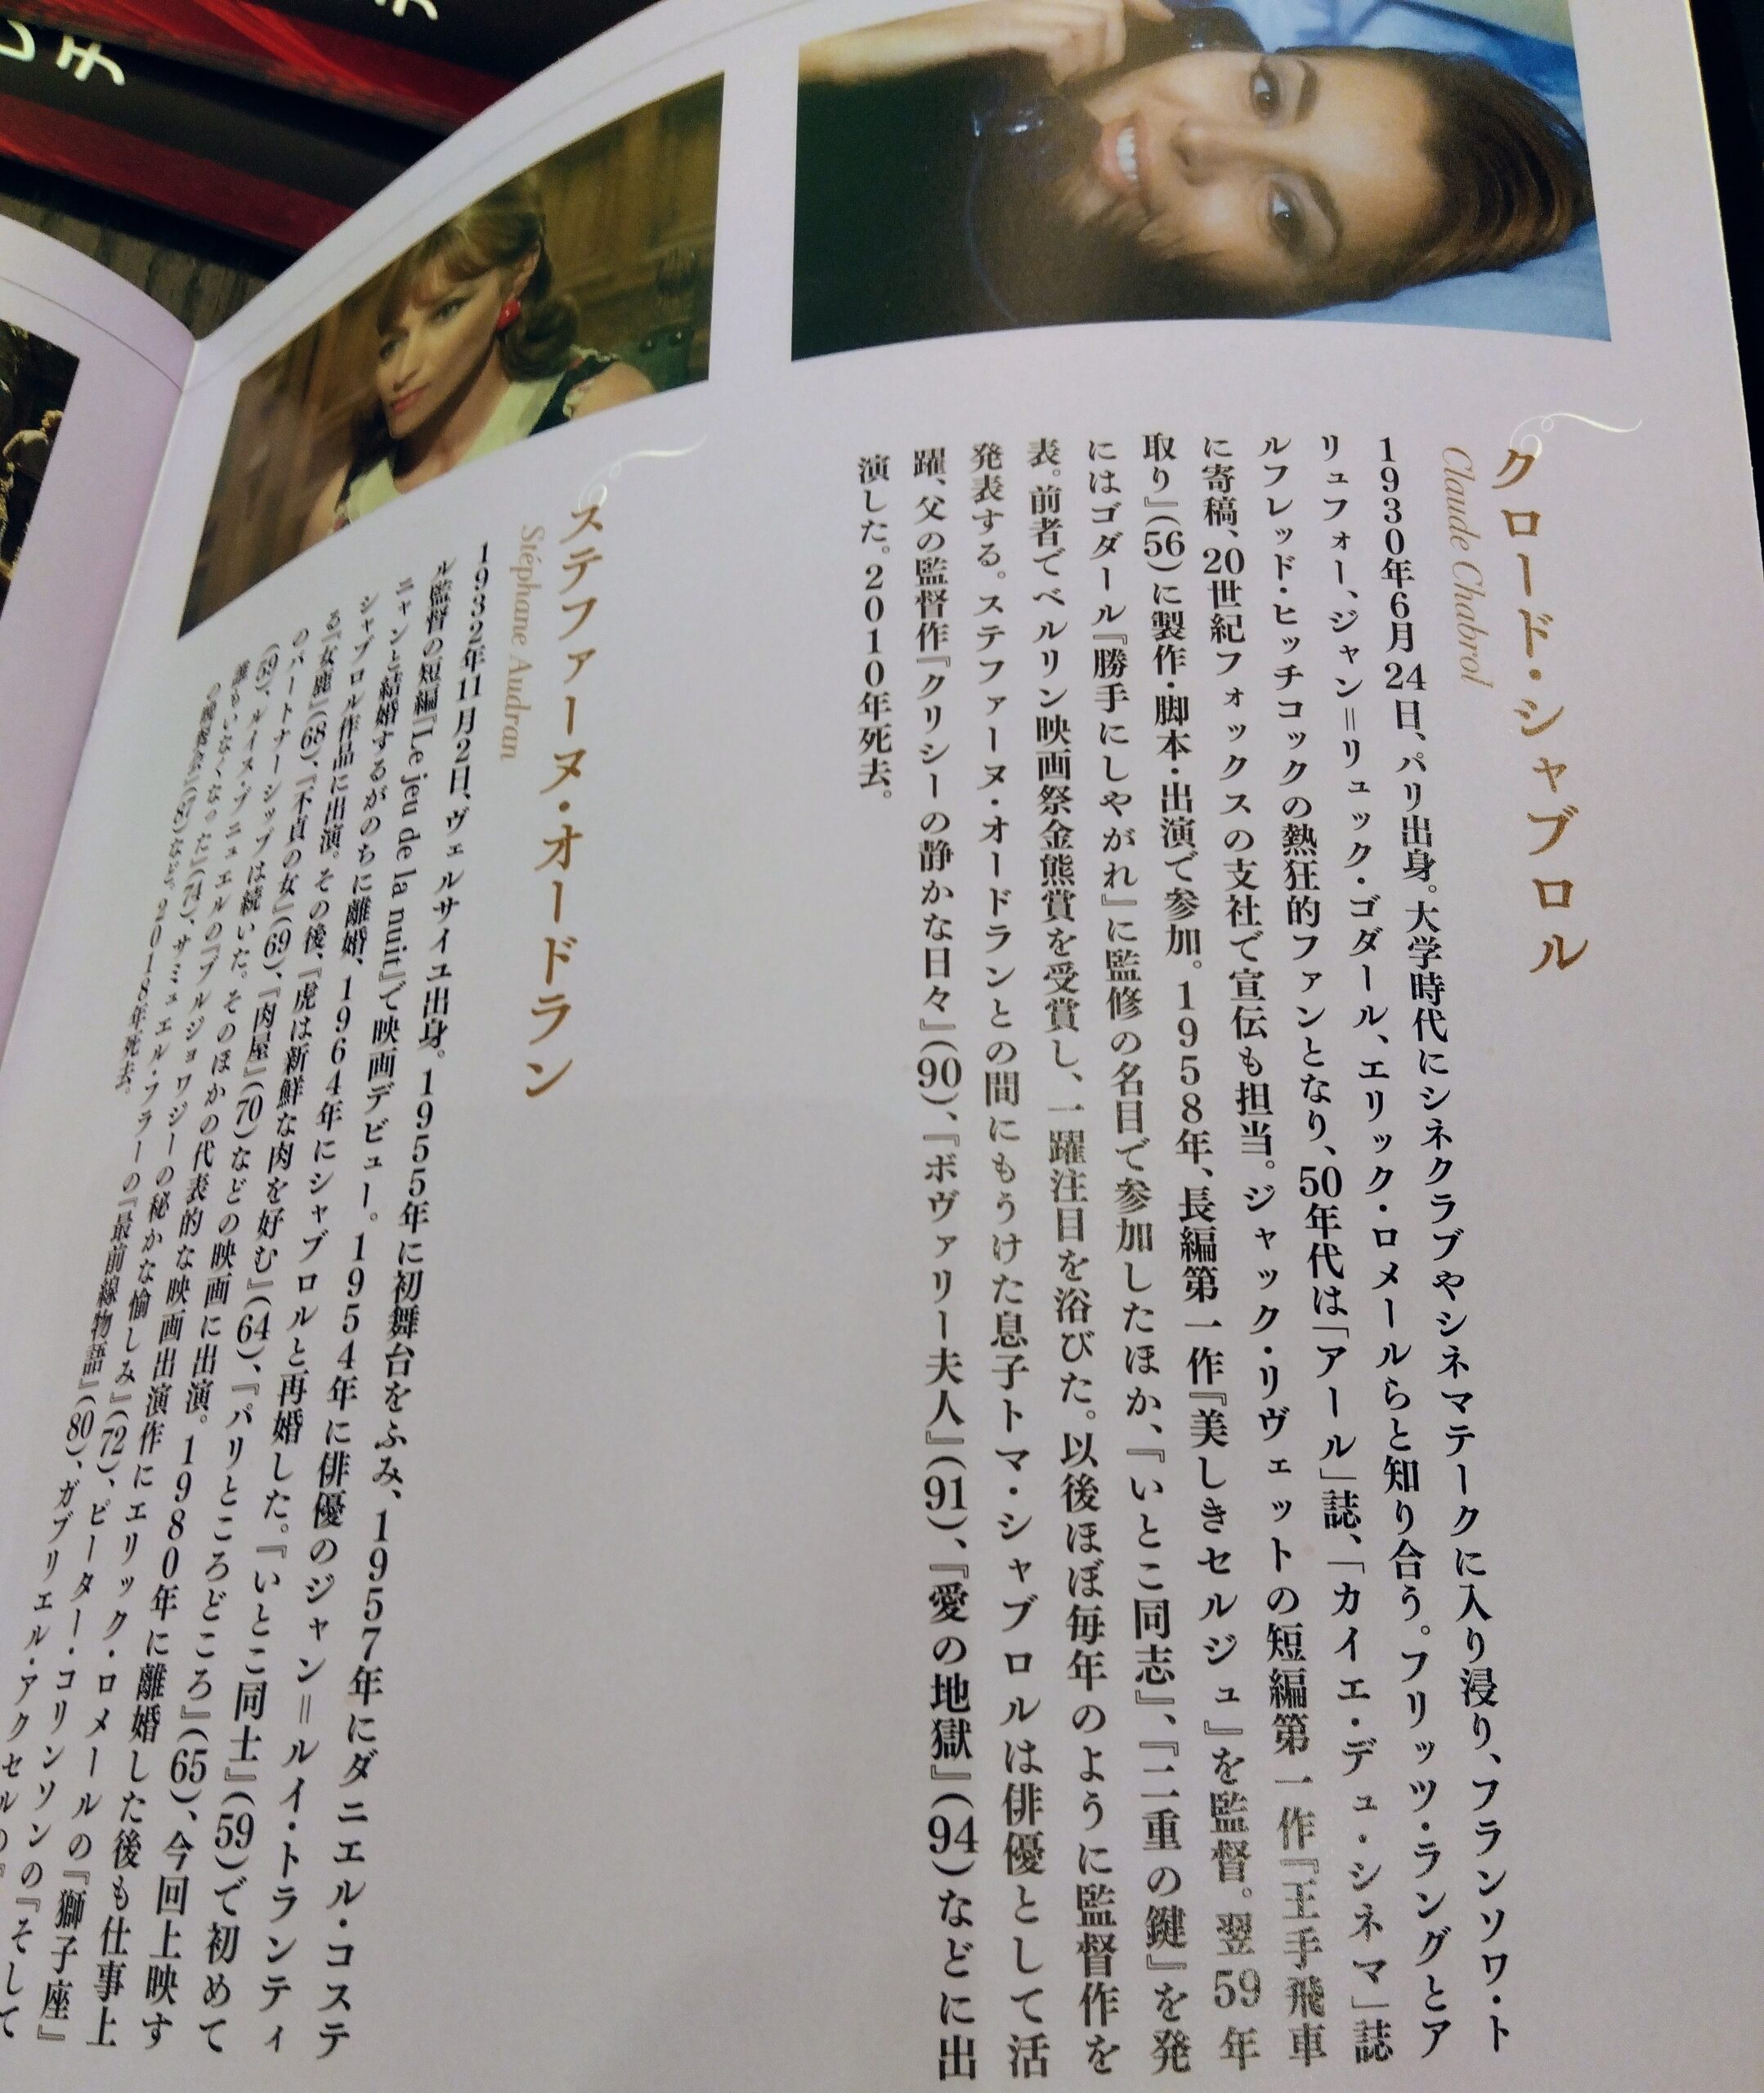 クロード・シャブロル
Claude Chabrol
1930年6月24日、パリ出身。大学時代にシネクラブやシネマテークに入り浸り、フランソワ・ト
リュフォー、ジャン=リュック・ゴダール、エリック・ロメールらと知り合う。フリッツ・ラングとア
ルフレッド・ヒッチコックの熱狂的ファンとなり、50年代は「アール」誌、「カイエ・デュ・シネマ」誌
に寄稿、20世紀フォックスの支社で宣伝も担当。ジャック・リヴェットの短編第一作『王手飛車
取り』(56)に製作・脚本・出演で参加。1958年、長編第一作『美しきセルジュ』を監督。翌59年
にはゴダール『勝手にしやがれ』に監修の名目で参加したほか、『いとこ同志』、『二重の鍵』を発
表。前者でベルリン映画祭金熊賞を受賞し、一躍注目を浴びた。以後ほぼ毎年のように監督作を
発表する。ステファーヌ・オードランとの間にもうけた息子トマ・シャブロルは俳優として活
躍、父の監督作『クリシーの静かな日々』(90)、『ボヴァリー夫人』(91)、『愛の地獄』(94)などに出
演した。2010年死去。
ステファーヌ・オードラン
Stéphane Audran
1932年11月2日、ヴェルサイユ出身。1955年に初舞台をふみ、1957年にダニエル・コステ
ル監督の短編『Le jeu de la nuit』で映画デビュー。1954年に俳優のジャン=ルイ・トランティ
ニャンと結婚するがのちに離婚、1964年にシャブロルと再婚した。『いとこ同士』(59)で初めて
シャブロル作品に出演。その後、『虎は新鮮な肉を好む』(64)、『パリところどころ』(65)、今回上映す
る『女鹿』(68)、『不貞の女』(69)、『肉屋』(70)などの映画に出演。1980年に離婚した後も仕事上
のパートナーシップは続いた。そのほかの代表的な映画出演作にエリック・ロメールの『獅子座』
(59)、ルイス・ブニュエルの『ブルジョワジーの秘かな愉しみ』(72)、ピーター・コリンソンの『そして
誰もいなくなった』(74)、サミュエル・フラーの『最前線物語』(80)、ガブリエル・アクセルの
(87)など。2018年死去。